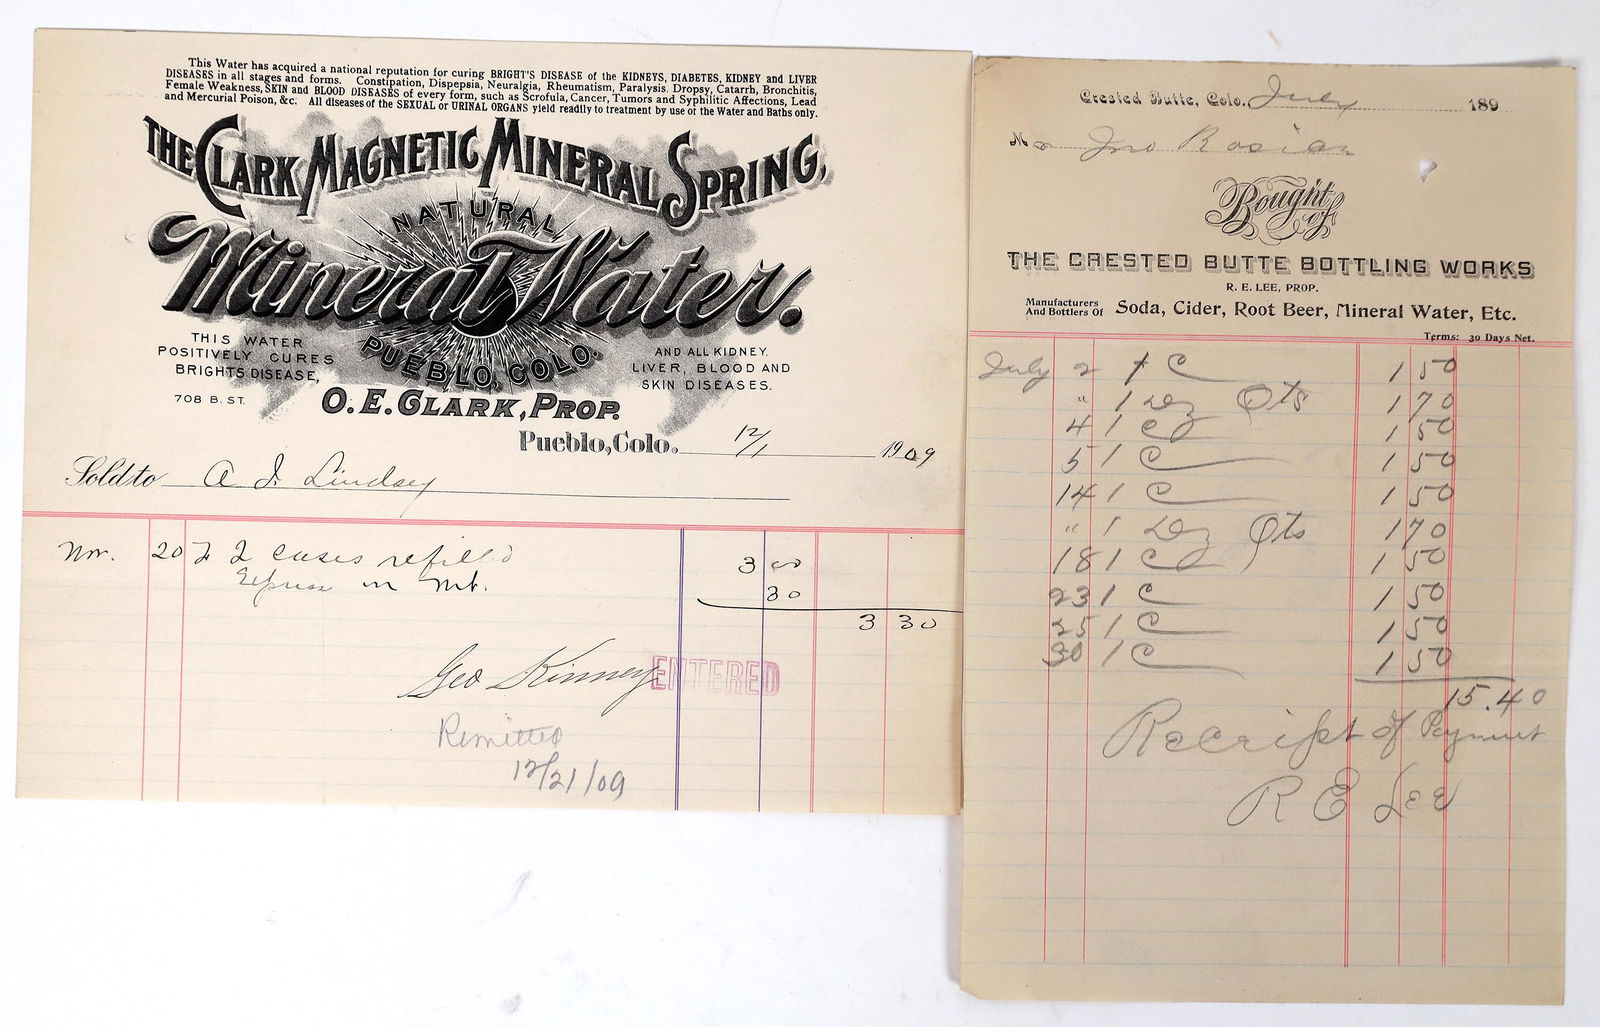 This Water has acquired a national reputation for curing BRIGHT'S DISEASE of the KIDNEYS, DIABETES, KIDNEY and LIVER
DISEASES in all stages and forms. Constipation, Dispepsia, Neuralgia, Rheumatism, Paralysis. Dropsy, Catarrh, Bronchitis,
Female Weakness, SKIN and BLOOD DISEASES of every form, such as Scrofula, Cancer, Tumors and Syphilitic Affections, Lead
and Mercurial Poison, &c. All diseases of the SEXUAL or URINAL ORGANS yield readily to treatment by use of the Water and Baths only.
THE CLARK MAGNETIC MINERAL SPRING,
NATURAL
Mineral Water.
PUEBLO, COLO.
THIS WATER
POSITIVELY CURES
BRIGHTS DISEASE,
AND ALL KIDNEY,
LIVER, BLOOD AND
SKIN DISEASES.
708 B. ST.
O. E. CLARK, PROP.
Pueblo, Colo. 12/1 1909
Sold to A. J. Lindsey
Nov. 20 2 cases refilled 3 00
Express on 30
3 30
Geo Kinney
ENTERED
Remitted
12/21/09
Crested Butte, Colo. July 189
M Jno
Bought of
THE CRESTED BUTTE BOTTLING WORKS
R. E. LEE, PROP.
Manufacturers And Bottlers Of Soda, Cider, Root Beer, Mineral Water, Etc.
Terms: 30 Days Net.
July 2 1 C 1 50
" 1 Dz Qts 1 70
4 1 C 1 50
5 1 C 1 50
14 1 C 1 50
" 1 Dz Qts 1 70
18 1 C 1 50
23 1 C 1 50
25 1 C 1 50
30 1 C 1 50
15.40
Receipt of Payment
R E Lee